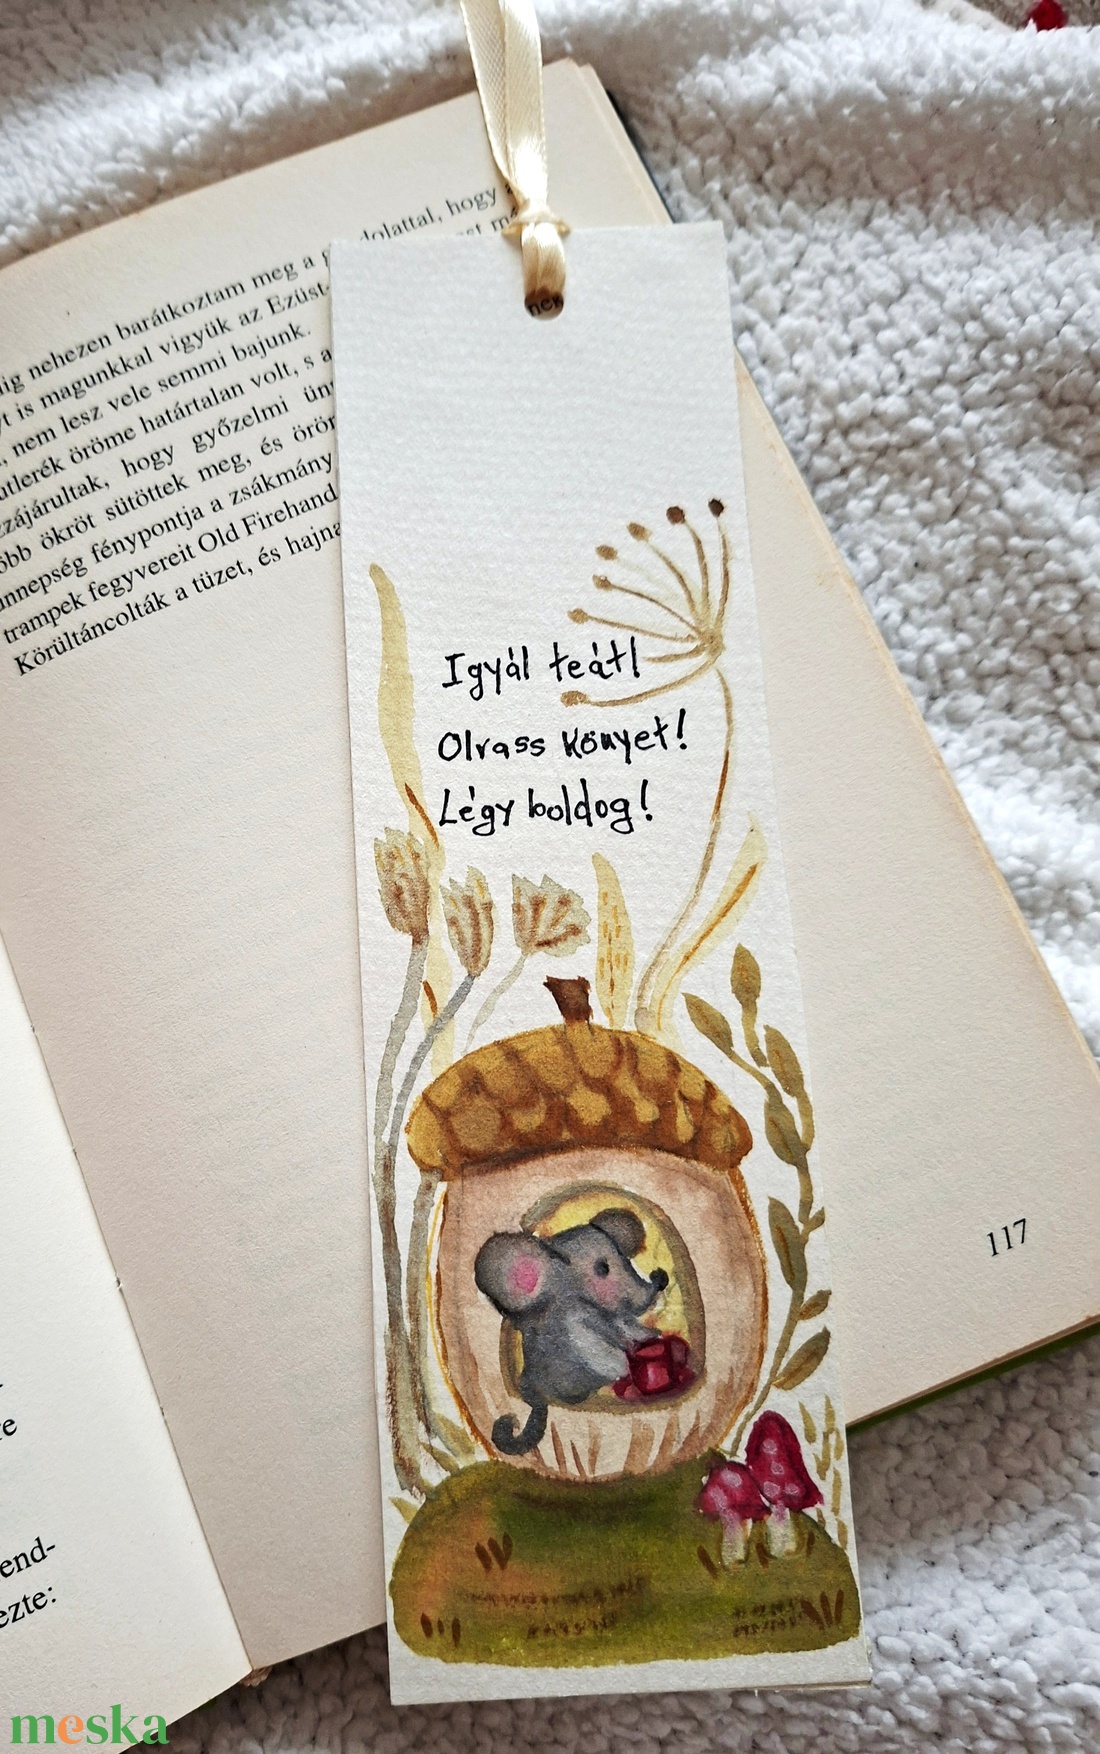 Igyál teát!
Olvass Könyet!
Légy boldog!
nehezen barátkoztam meg a
dolattal, hogy
is magunkkal vigyük az Ezüst-
nem lesz vele semmi bajunk.
öröme határtalan volt, s a
hogy győzelmi
ökröt sütöttek meg, és
fénypontja a zsákmány
trampek fegyvereit Old Firehand
Körültáncolták a tüzet, és
117
end-
ezte:
meska